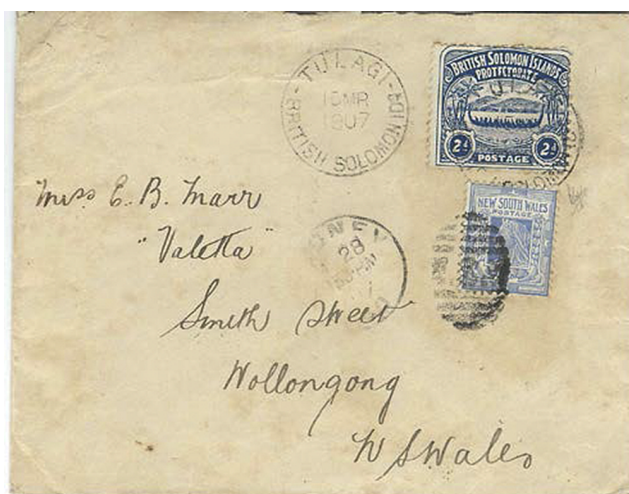 TULAGI
15MR
1907
BRITISH SOLOMON ID
BRITISH SOLOMON ISLANDS
PROTECTORATE
2d 2d
POSTAGE
TULA
SOLOMON
NEW SOUTH WALES
POSTAGE
DNEY
28
Miss E. B. Marr
"Valetta"
Smith Street
Wollongong
N S Wales